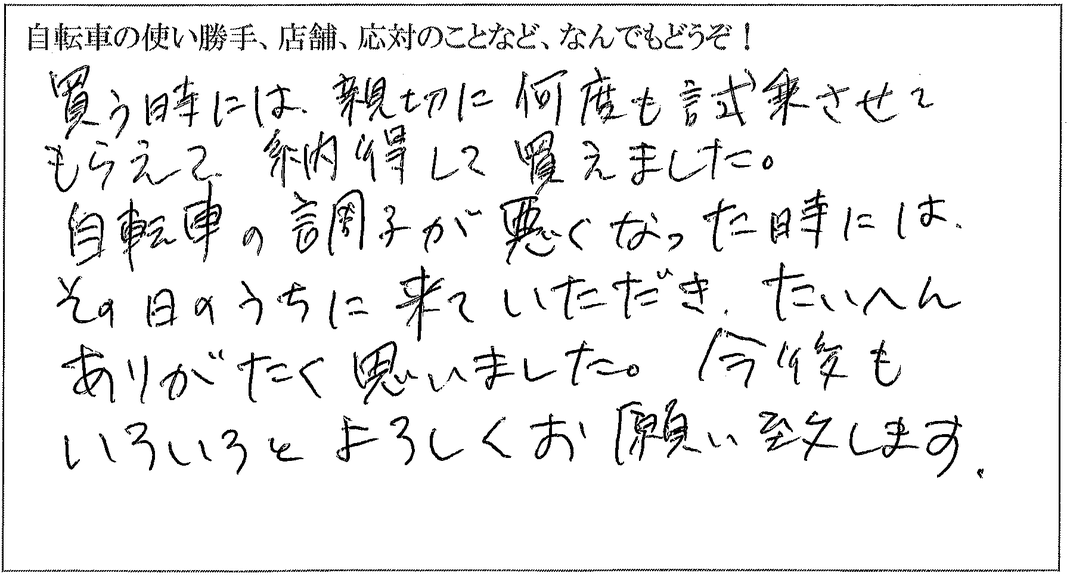 自転車の使い勝手、店舗、応対のことなど、なんでもどうぞ！
買う時には、親切に何度も試乗させて
もらえて、納得して買えました。
自転車の調子が悪くなった時には、
その日のうちに来ていただき、たいへん
ありがたく思いました。今後も
いろいろとよろしくお願い致します。